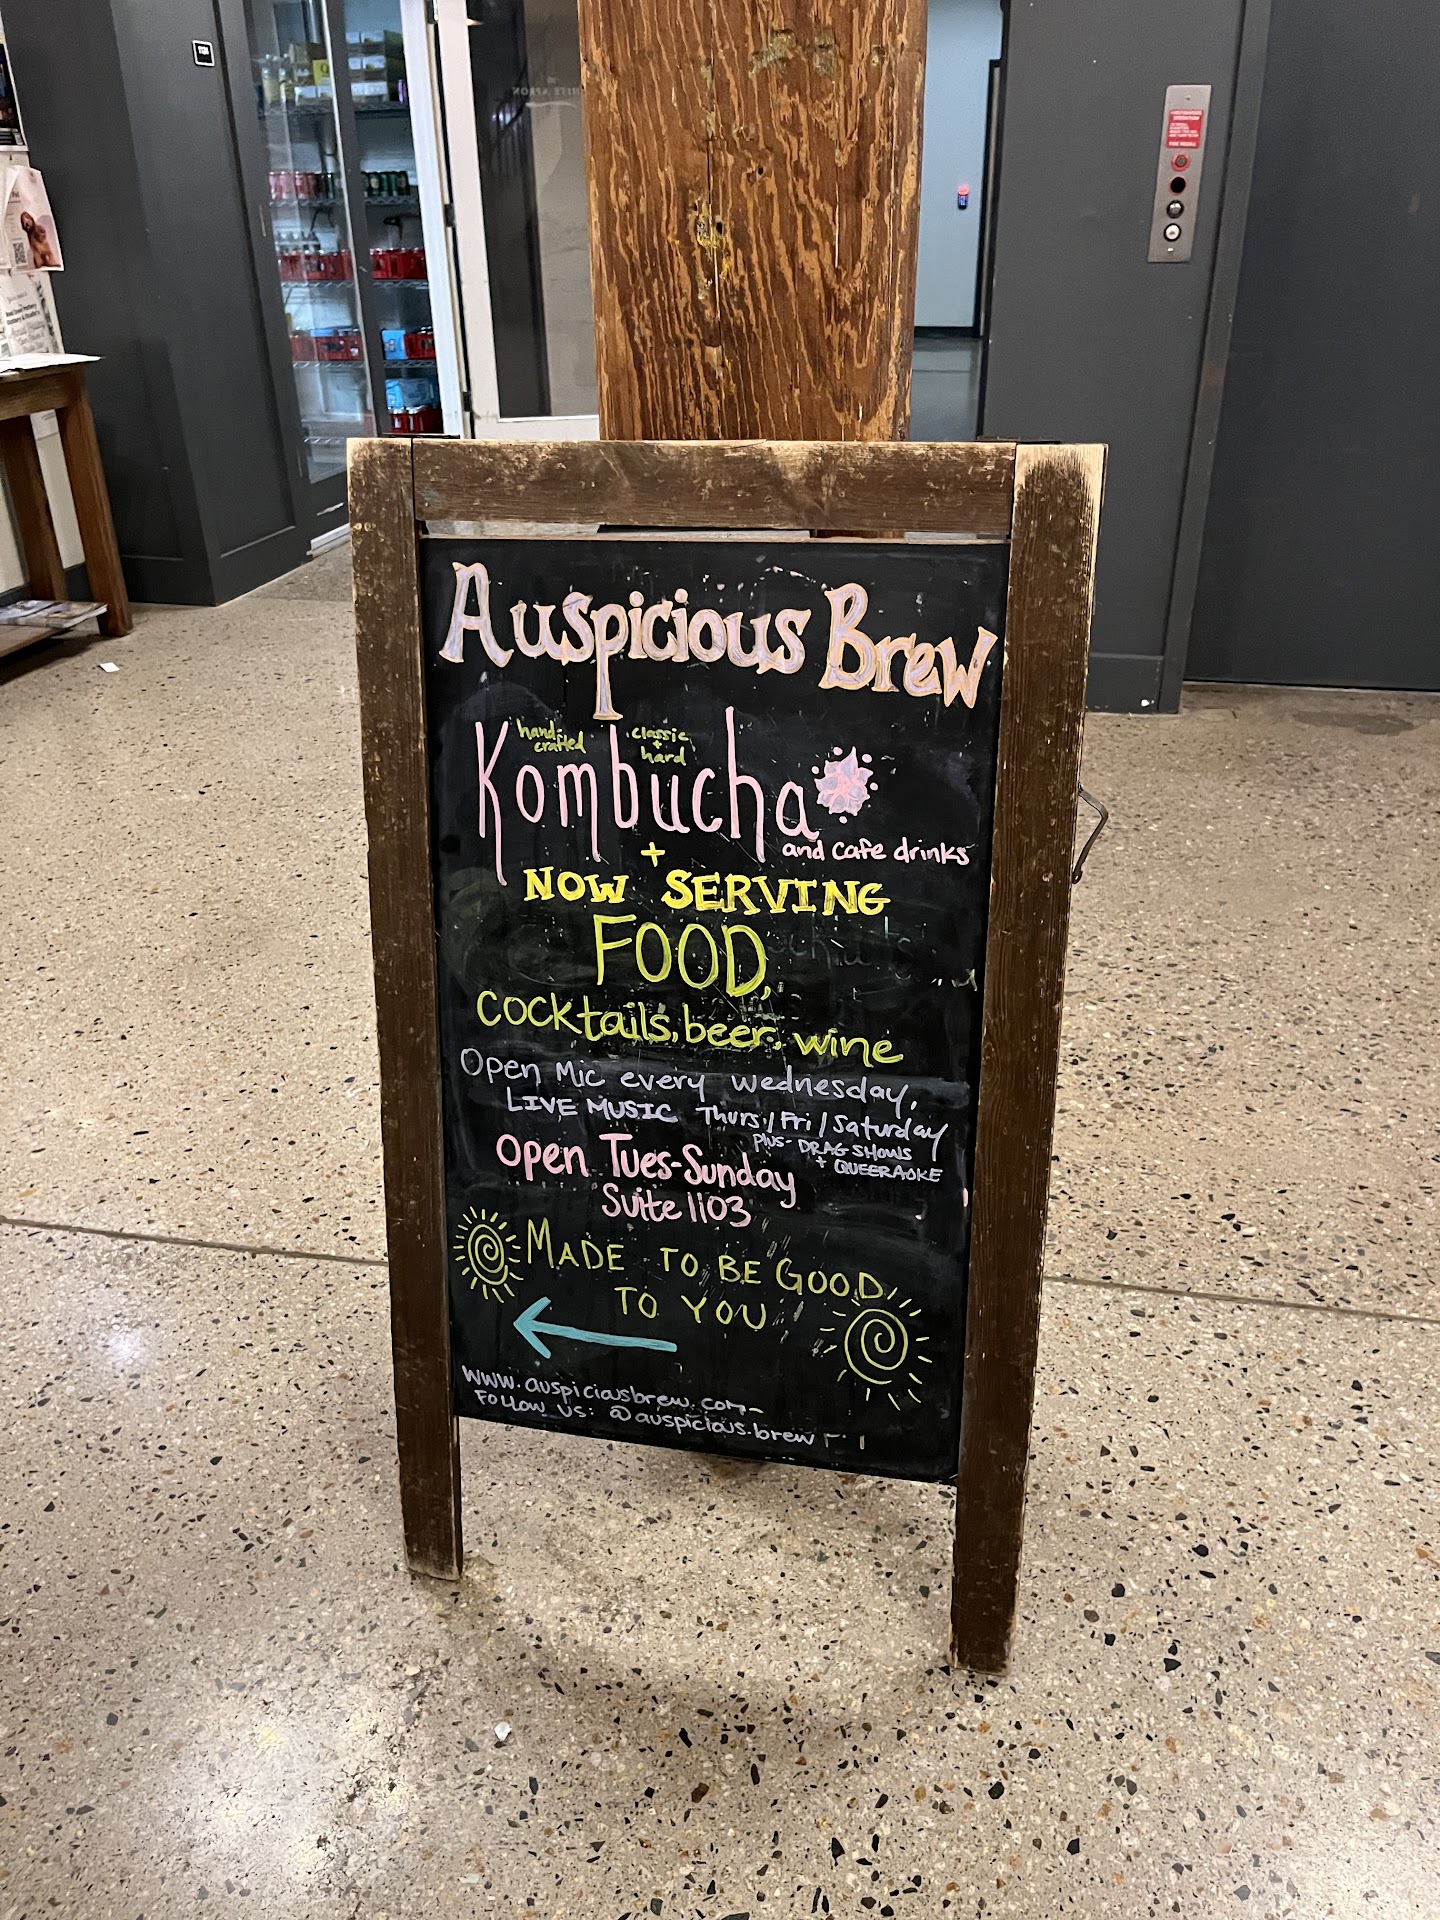 Auspicious Brew
hand-crafted
classic + hard
Kombucha
and cafe drinks
+
NOW SERVING
FOOD,
cocktails, beer, wine
Open Mic every Wednesday,
LIVE MUSIC Thurs / Fri / Saturday
plus- DRAG SHOWS
+ QUEERAOKE
Open Tues-Sunday
Suite 1103
MADE TO BE GOOD
TO YOU
www.auspiciousbrew.com
Follow us: @auspicious.brew